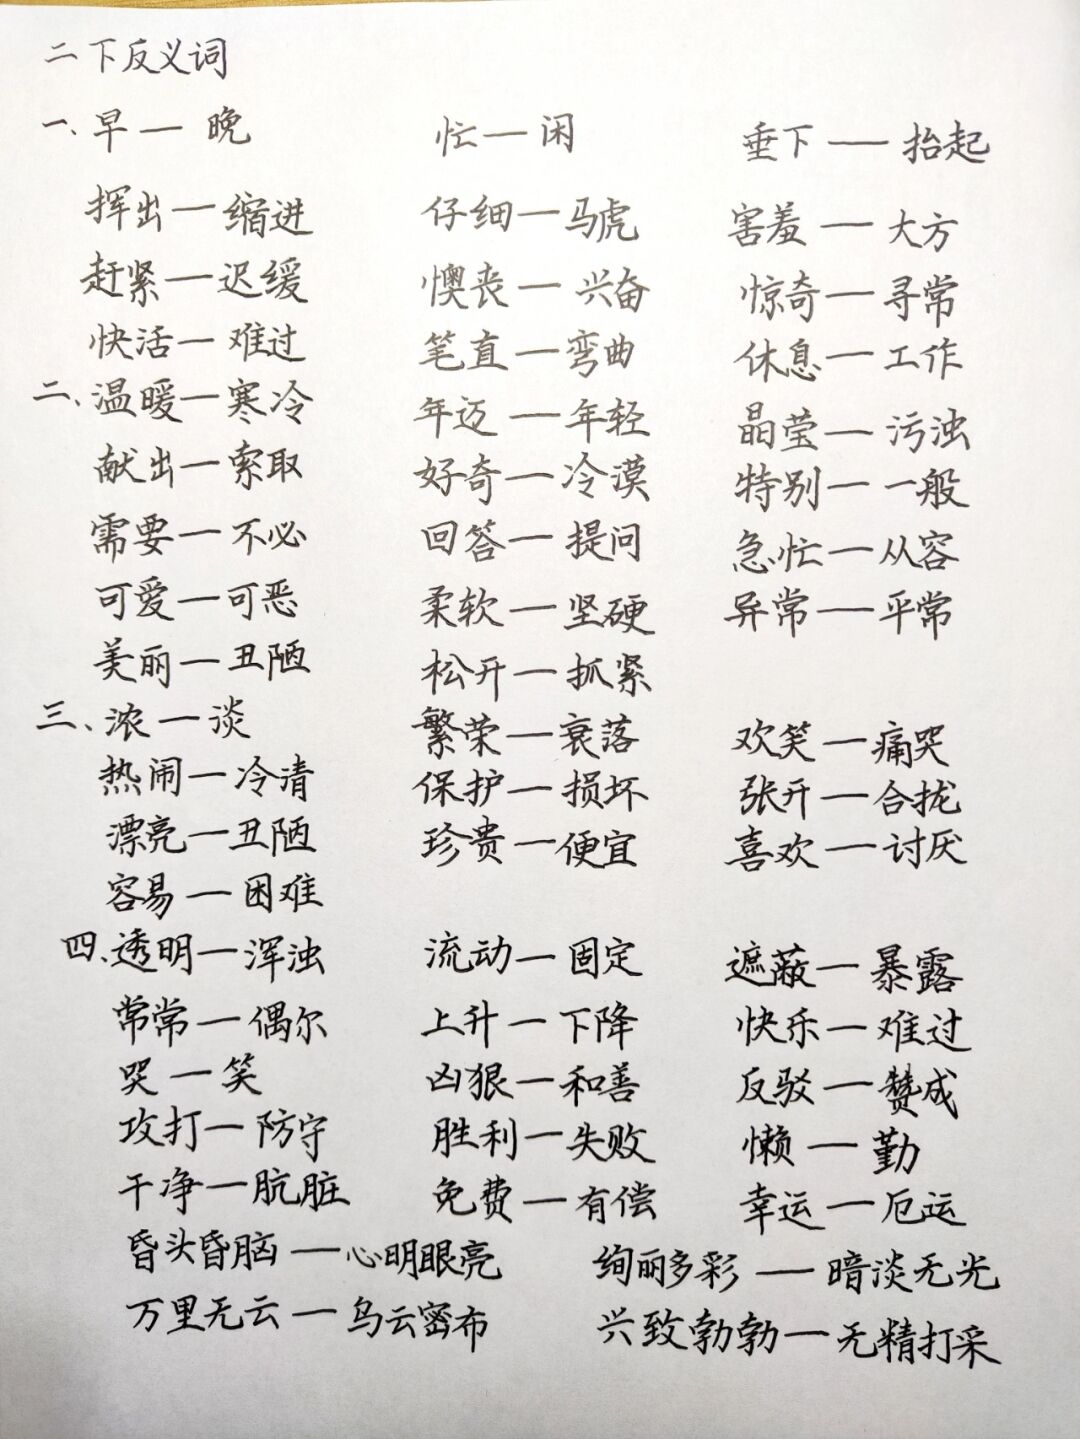 二下反义词
一、早—晚 忙—闲 垂下—抬起
挥出—缩进 仔细—马虎 害羞—大方
赶紧—迟缓 懊丧—兴奋 惊奇—寻常
快活—难过 笔直—弯曲 休息—工作
二、温暖—寒冷 年迈—年轻 晶莹—污浊
献出—索取 好奇—冷漠 特别—一般
需要—不必 回答—提问 急忙—从容
可爱—可恶 柔软—坚硬 异常—平常
美丽—丑陋 松开—抓紧
三、浓—淡 繁荣—衰落 欢笑—痛哭
热闹—冷清 保护—损坏 张开—合拢
漂亮—丑陋 珍贵—便宜 喜欢—讨厌
容易—困难
四、透明—浑浊 流动—固定 遮蔽—暴露
常常—偶尔 上升—下降 快乐—难过
哭—笑 凶狠—和善 反驳—赞成
攻打—防守 胜利—失败 懒—勤
干净—肮脏 免费—有偿 幸运—厄运
昏头昏脑—心明眼亮 绚丽多彩—暗淡无光
万里无云—乌云密布 兴致勃勃—无精打采